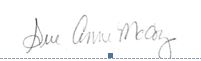 Sue Anne McCoy